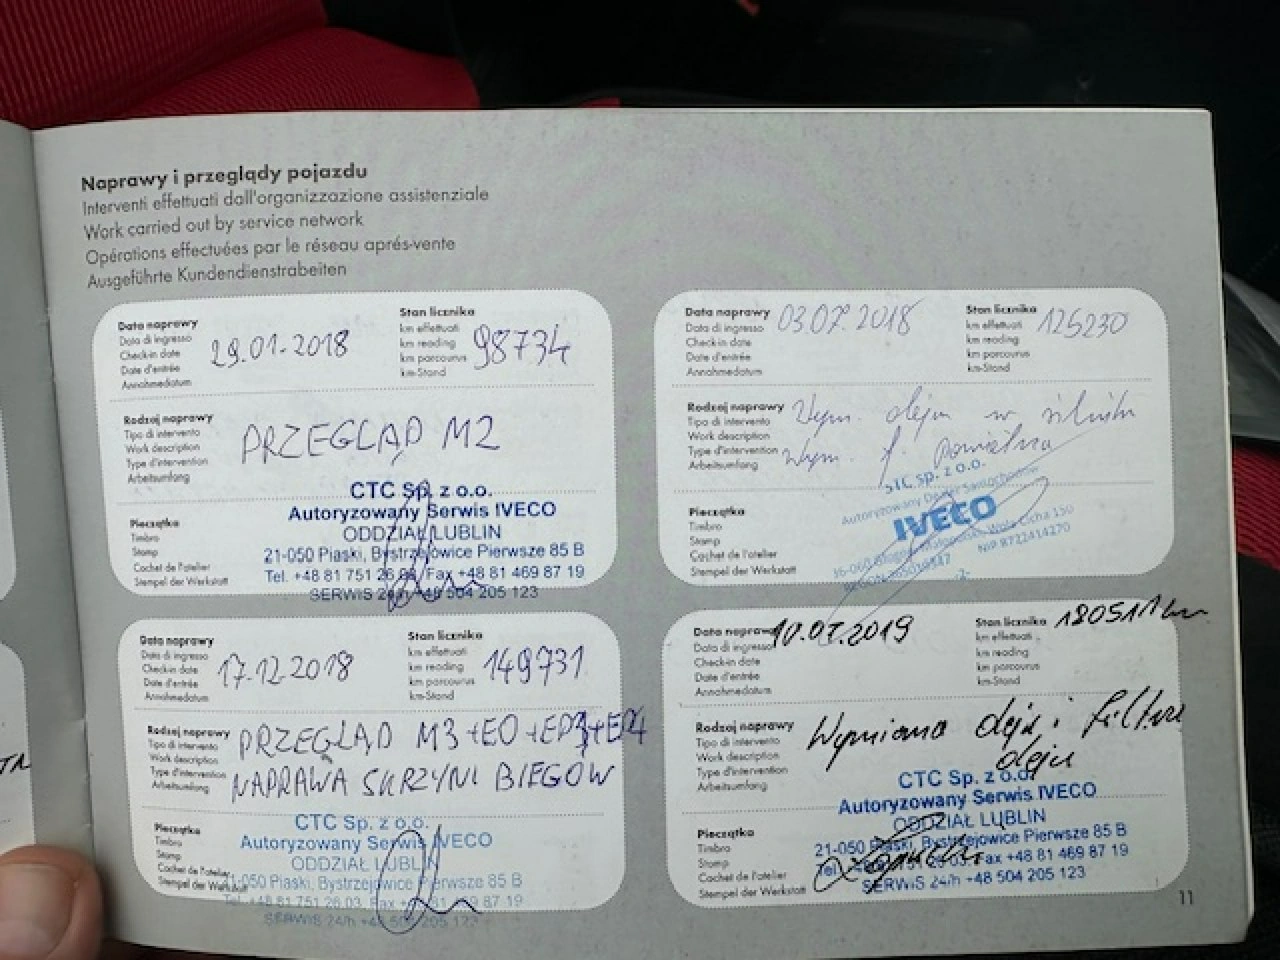 Naprawy i przeglądy pojazdu
Interventi effettuati dall'organizzazione assistenziale
Work carried out by service network
Opérations effectuées par le réseau aprés-vente
Ausgeführte Kundendienstrabeiten
Data naprawy
Data di ingresso
Check-in date
Date d'entrée
Annahmedatum
29.01.2018
Stan licznika
km effettuati
km reading
km parcourus
km-Stand
98734
Rodzaj naprawy
Tipo di intervento
Work description
Type d'intervention
Arbeitsumfang
PRZEGLĄD M2
Pieczątka
Timbro
Stamp
Cachet de l'atelier
Stempel der Werkstatt
CTC Sp. z o.o.
Autoryzowany Serwis IVECO
ODDZIAŁ LUBLIN
21-050 Piaski, Bystrzejowice Pierwsze 85 B
Tel. +48 81 751 26 03, Fax +48 81 469 87 19
SERWIS 24/h +48 504 205 123
Data naprawy
Data di ingresso
Check-in date
Date d'entrée
Annahmedatum
03.07.2018
Stan licznika
km effettuati
km reading
km parcourus
km-Stand
125230
Rodzaj naprawy
Tipo di intervento
Work description
Type d'intervention
Arbeitsumfang
Wym. oleju w silniku
Wym. f. powietrza
Pieczątka
Timbro
Stamp
Cachet de l'atelier
Stempel der Werkstatt
STC sp. z o.o.
Autoryzowany Dealer Samochodów
IVECO
Wola Cicha 150
NIP 8722414270
-2-
Data naprawy
Data di ingresso
Check-in date
Date d'entrée
Annahmedatum
17.12.2018
Stan licznika
km effettuati
km reading
km parcourus
km-Stand
149731
Rodzaj naprawy
Tipo di intervento
Work description
Type d'intervention
Arbeitsumfang
PRZEGLĄD M3+EO+EP3+EP4
NAPRAWA SKRZYNI BIEGÓW
Pieczątka
Timbro
Stamp
Cachet de l'atelier
Stempel der Werkstatt
CTC Sp. z o.o.
Autoryzowany Serwis IVECO
ODDZIAŁ LUBLIN
21-050 Piaski, Bystrzejowice Pierwsze 85 B
Tel. +48 81 751 26 03, Fax +48 81 469 87 19
SERWIS 24/h +48 504 205 123
Data naprawy
Data di ingresso
Check-in date
Date d'entrée
Annahmedatum
10.07.2019
Stan licznika
km effettuati
km reading
km parcourus
km-Stand
180511 km
Rodzaj naprawy
Tipo di intervento
Work description
Type d'intervention
Arbeitsumfang
Wymiana oleju i filtra
oleju
Pieczątka
Timbro
Stamp
Cachet de l'atelier
Stempel der Werkstatt
CTC Sp. z o.o.
Autoryzowany Serwis IVECO
ODDZIAŁ LUBLIN
21-050 Piaski, Bystrzejowice Pierwsze 85 B
Fax +48 81 469 87 19
SERWIS 24/h +48 504 205 123
11